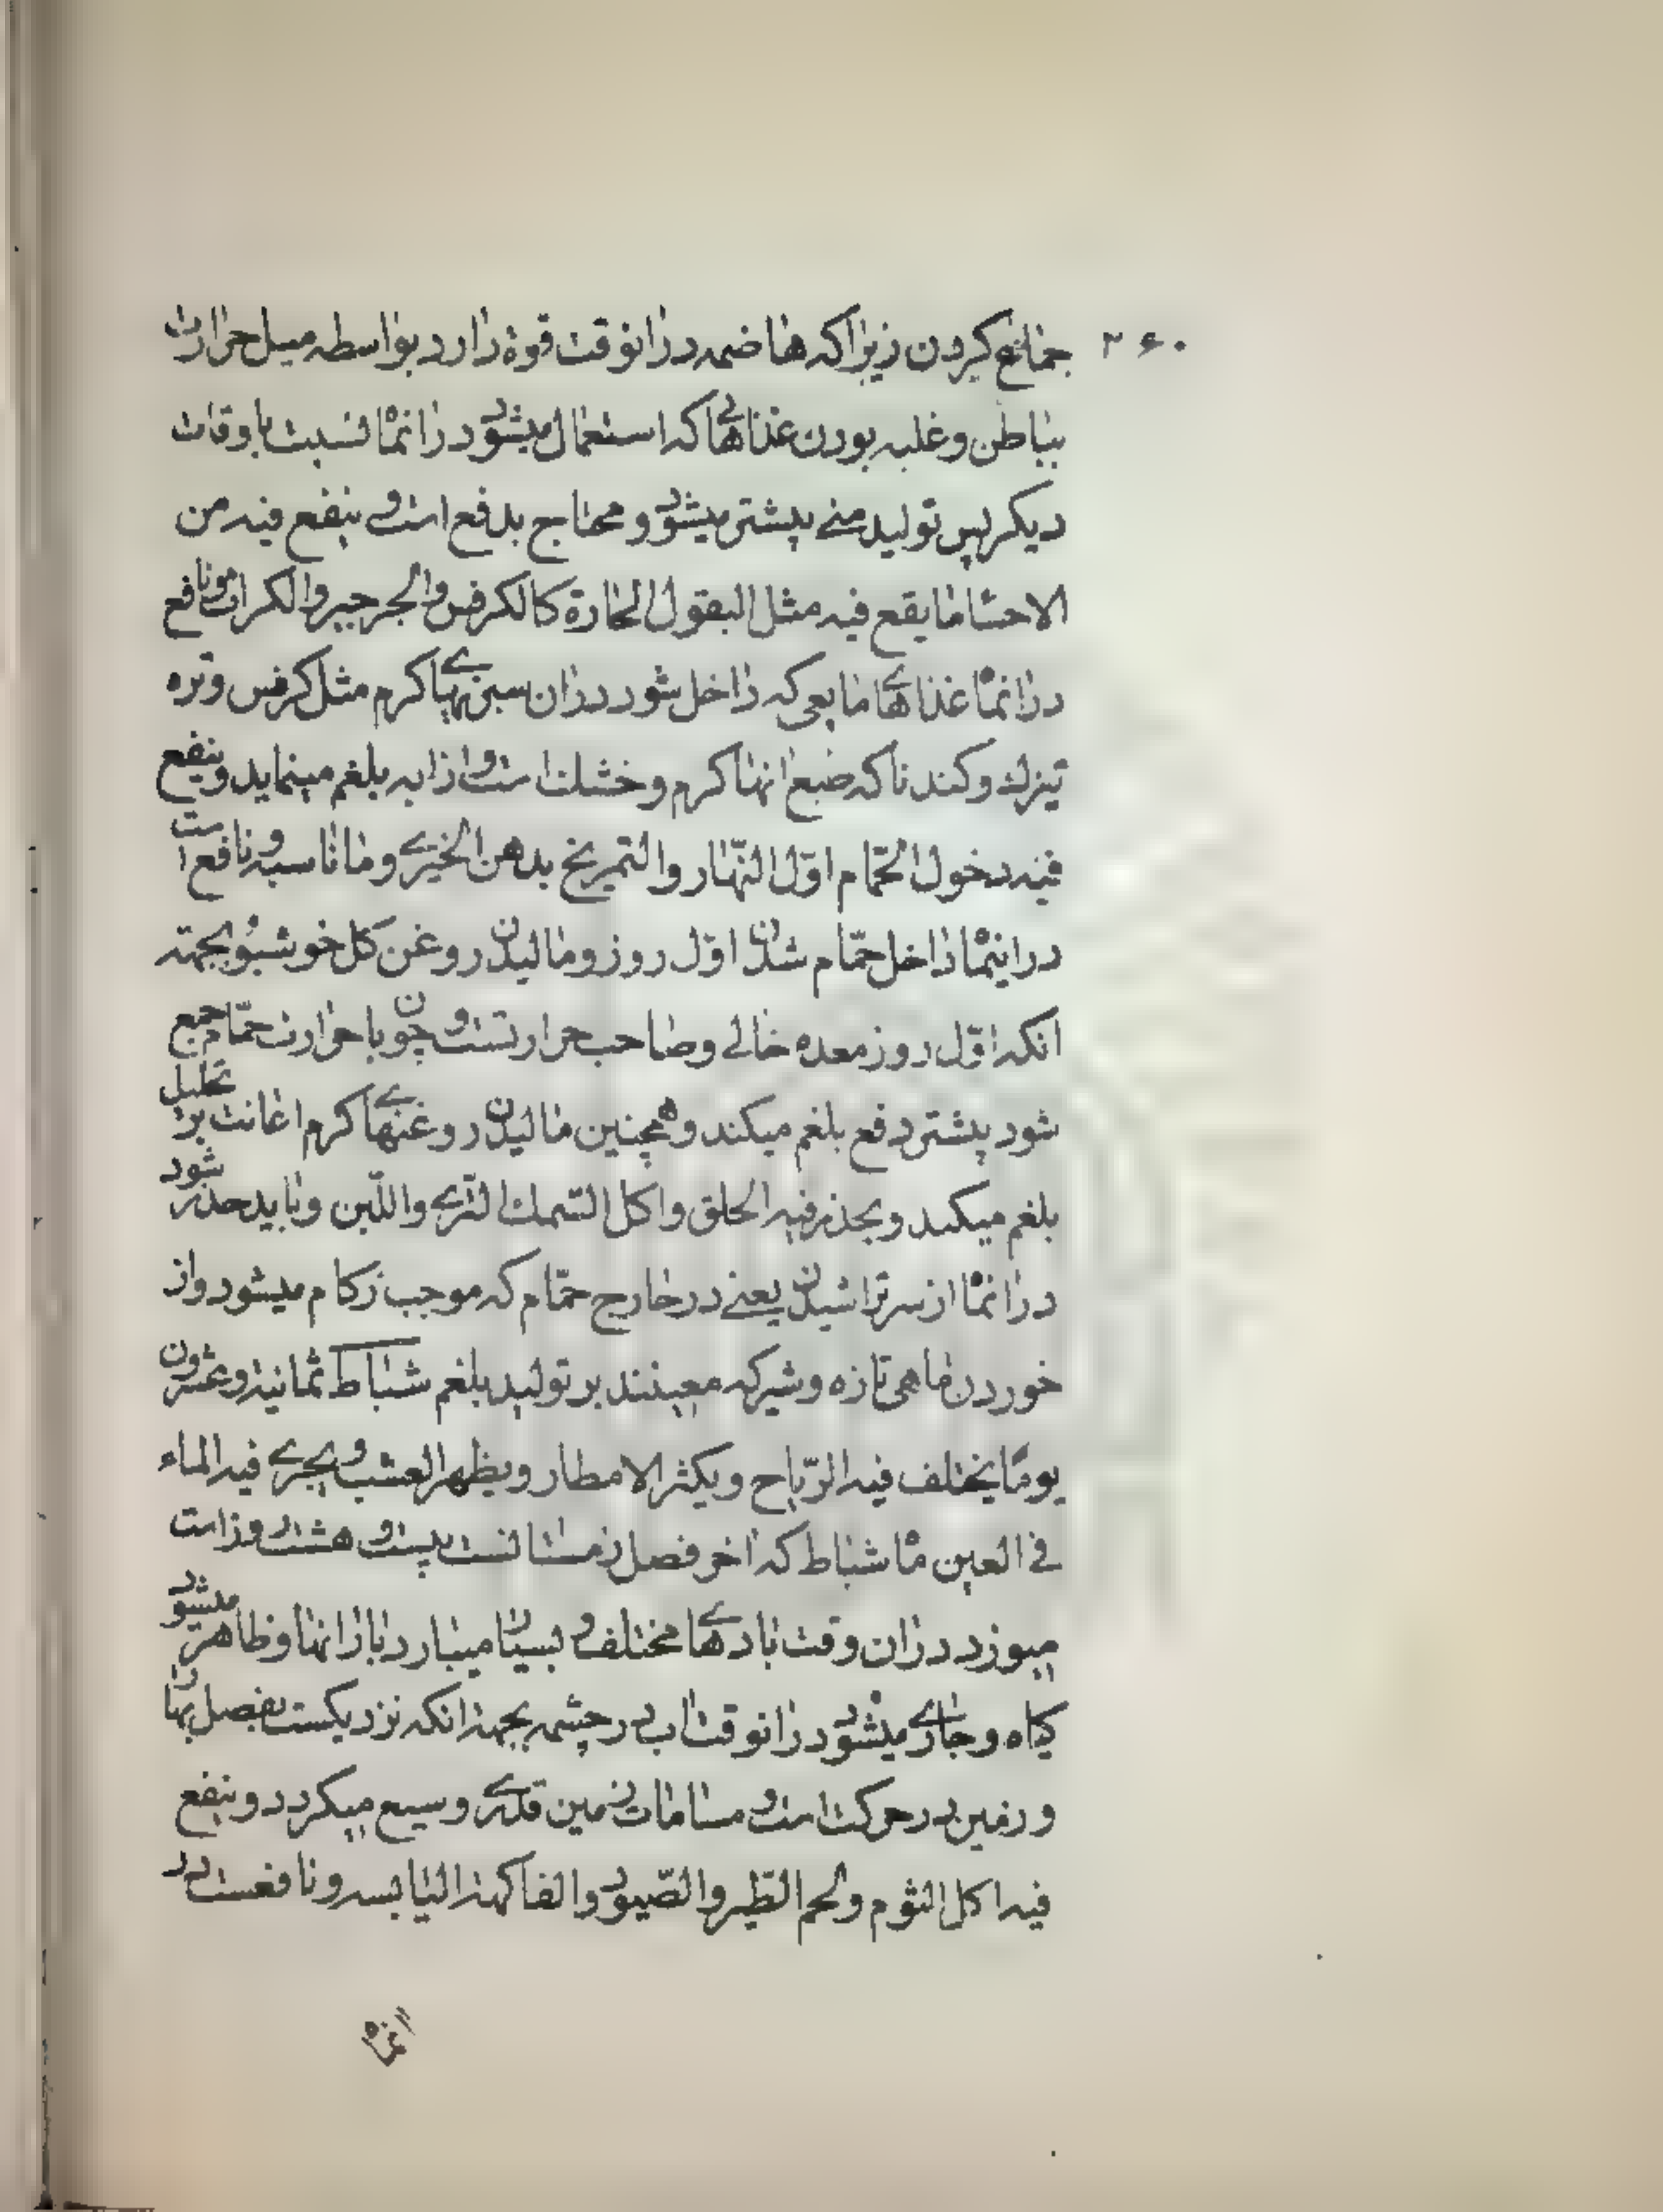 ۲۶۰
جماع کردن زیرا که هاضمه در انوقت قوة دارد بواسطه میل حرارت
بباطن و غلبه بودن غذاهائی که استعمال میشود در انماه نسبت باوقات
دیکر پس تولید منی بیشتر میشود و محتاج بدفع است و ینفع فیه من
الاحسا ما یقع فیه مثل البقول الحارة کالکرفس والجرجیر والکراث و نافع
در انماه غذاهای مایعی که داخل شود در ان سبزیهای کرم مثل کرفس و تره
تیزک و کندنا که طبع انها کرم و خشک است و اذابه بلغم مینماید و ینفع
فیه دخول الحمّام اوّل النّهار والتمریخ بدهن الخیری و ما ناسبه و نافع است
در اینماه داخل حمّام شدن اوّل روز و مالیدن روغن کل خوشبو بجهة
انکه اوّل روز معده خالی و صاحب حرارتست و چون با حرارت حمّام جمع
شود بیشتر دفع بلغم میکند و همچنین مالیدن روغنهای کرم اعانت بر تحلیل
بلغم میکند و یحذر فیه الحلق و اکل السّمک الطّری واللّبن و باید حذر شود
در انماه از سر تراشیدن یعنی در خارج حمّام که موجب زکام میشود و از
خوردن ماهی تازه و شیر که معینند بر تولید بلغم شباط ثمانیة و عشرون
یومًا یختلف فیه الرّیاح و یکثر الامطار و یظهر العشب و یجری فیه الماء
فی العین ماه شباط که اخر فصل زمستانست بیست و هشت روز است
میوزد در ان وقت بادهای مختلف و بسیار میبارد بارانها و ظاهر میشود
کیاه و جاری میشود در انوقت اب در چشمه بجهة انکه نزدیکست بفصل بهار
و زمین در حرکت است و مسامات زمین قدری وسیع میکردد و ینفع
فیه اکل الثوم و لحم الطّیر والصّیود والفاکهة الیابسه و نافعست در
انماه